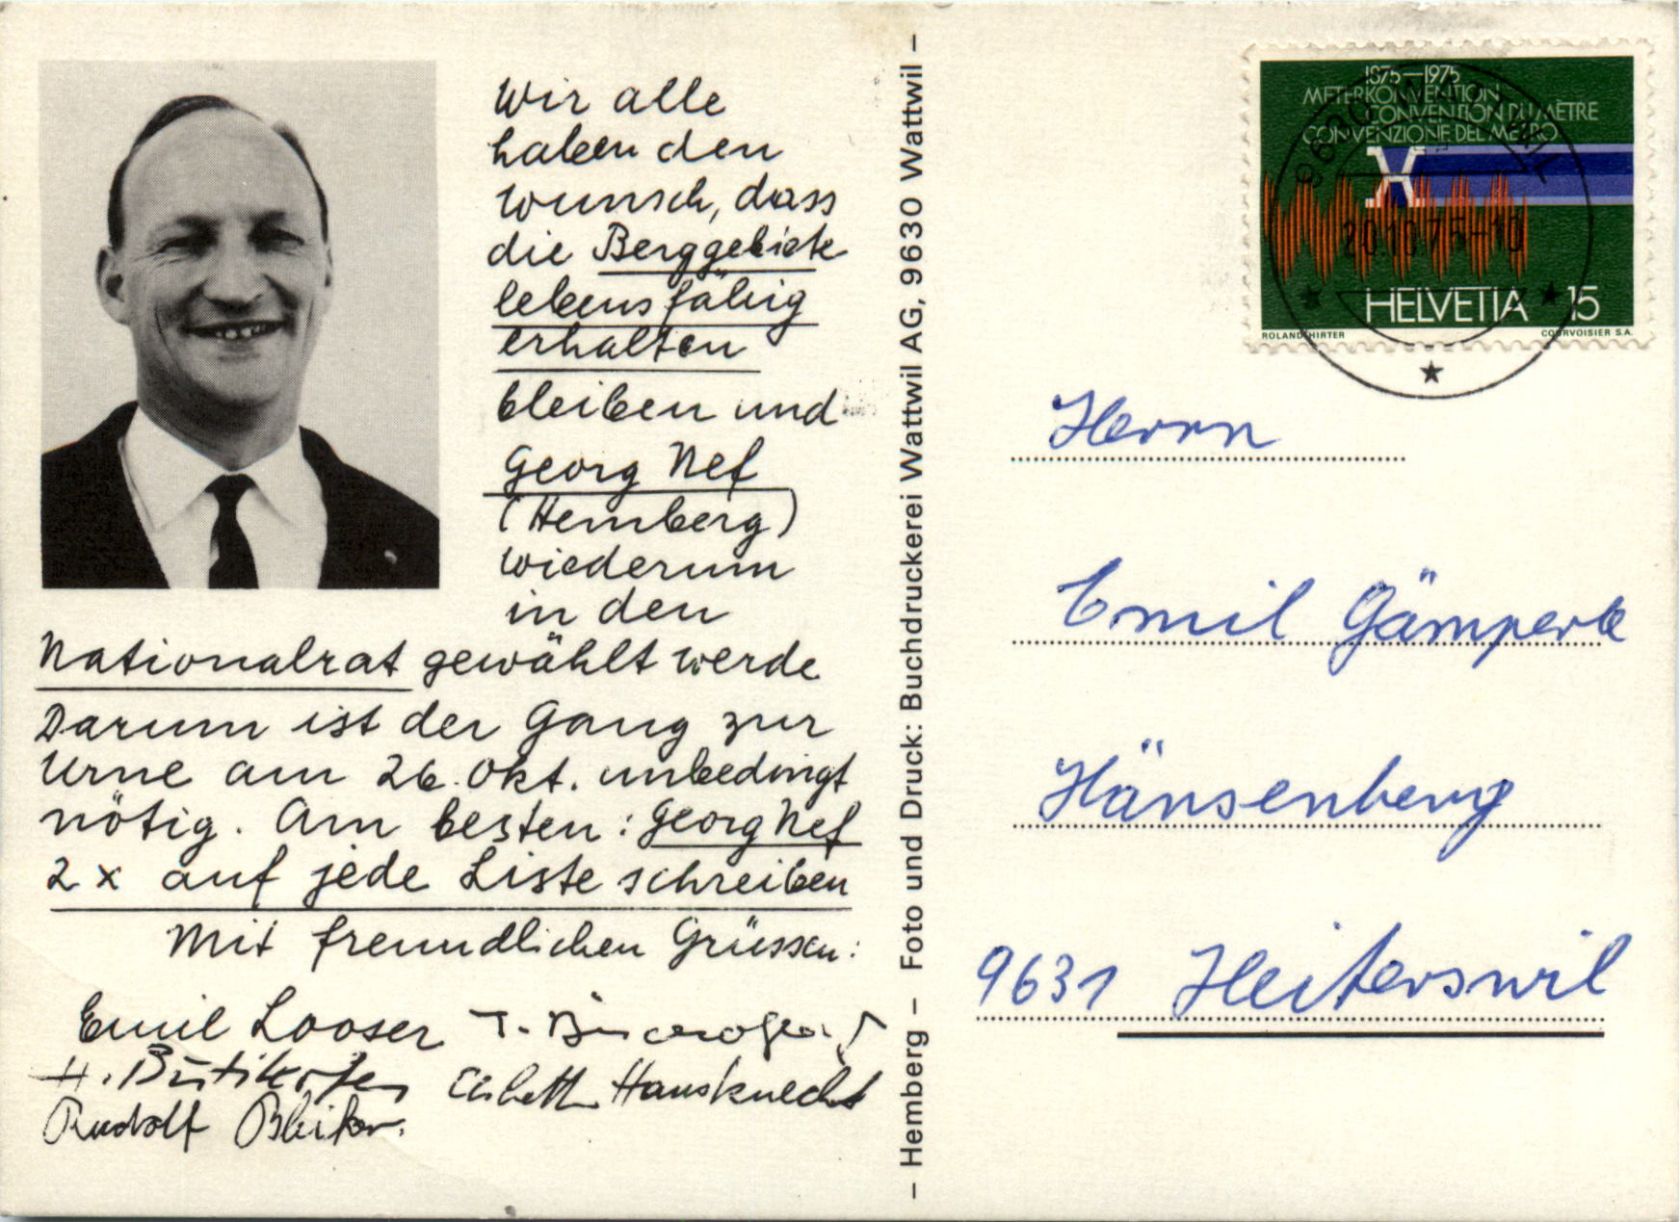 Wir alle
haben den
Wunsch, dass
die Berggebiete
lebensfähig
erhalten
bleiben und
Georg Nef
(Hemberg)
wiederum
in den
Nationalrat gewählt werde
Darum ist der Gang zur
Urne am 26. Okt. unbedingt
nötig. Am besten: Georg Nef
2 x auf jede Liste schreiben
Mit freundlichen Grüssen:
Emil Looser
H. Bütikofer Elisbeth Hausknecht
Rudolf Bleiker.
– Hemberg – Foto und Druck: Buchdruckerei Wattwil AG, 9630 Wattwil –
1875–1975
METERKONVENTION
CONVENTION DU MÈTRE
CONVENZIONE DEL METRO
20.10.75-10
HELVETIA 15
ROLAND HIRTER COURVOISIER S.A.
Herrn
Emil Gämperle
Hänsenberg
9631 Heiterswil